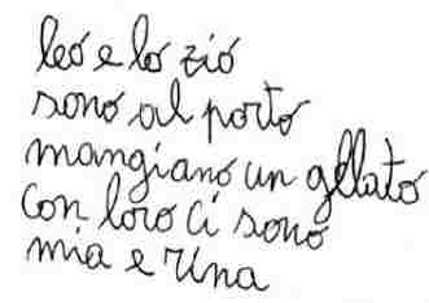 leo e lo zio
sono al porto
mangiano un gellato
con loro ci sono
mia e rina